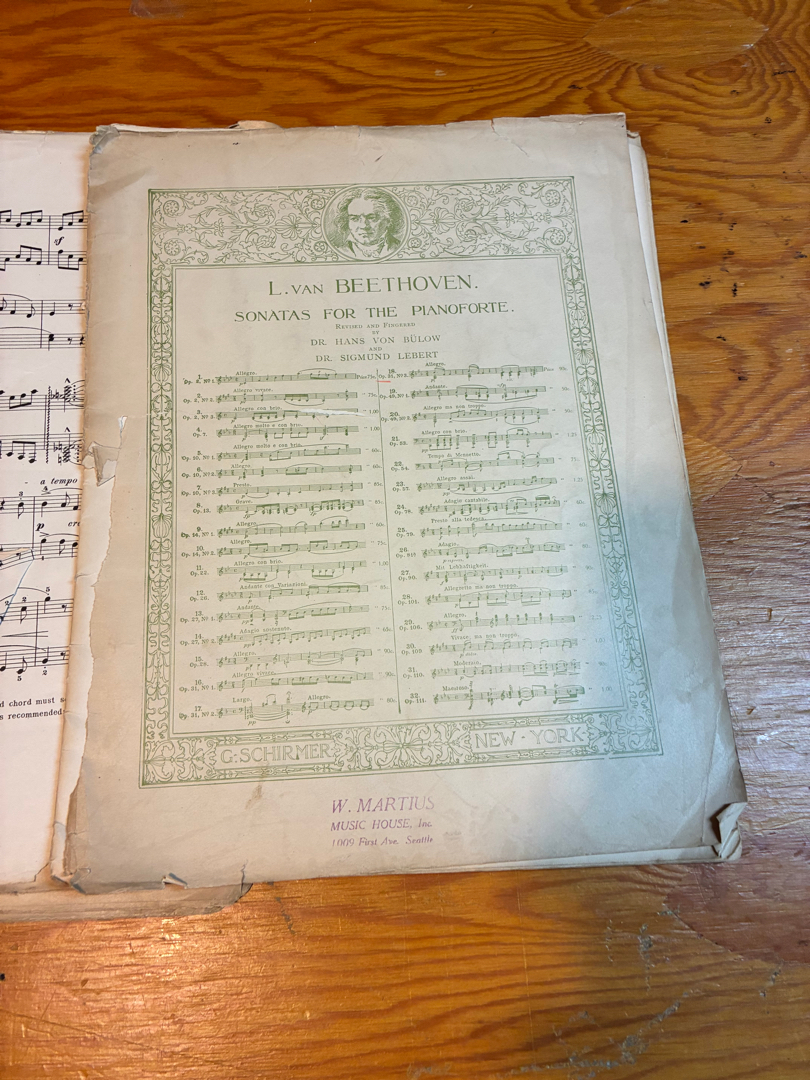 L. VAN BEETHOVEN.
SONATAS FOR THE PIANOFORTE.
REVISED AND FINGERED
BY
DR. HANS VON BÜLOW
AND
DR. SIGMUND LEBERT
1. Allegro.
Op. 2, Nº 1. Price 75c.
2. Allegro vivace.
Op. 2, Nº 2. " 75c.
3. Allegro con brio.
Op. 2, Nº 3. " 1.00
4. Allegro molto e con brio.
Op. 7. " 1.00
5. Allegro molto e con brio.
Op. 10, Nº 1. " 60c.
6. Allegro.
Op. 10, Nº 2. " 60c.
7. Presto.
Op. 10, Nº 3.
Grave.
Op. 13.
9. Allegro.
Op. 14, Nº 1. " 60c.
10. Allegro.
Op. 14, Nº 2. " 75c.
11. Allegro con brio.
Op. 22. " 1.00
12. Andante con Variazioni.
Op. 26.
13. Andante.
Op. 27, Nº 1. " 75c.
14. Adagio sostenuto.
Op. 27, Nº 2.
15. Allegro.
Op. 28. " 90c.
16. Allegro vivace.
Op. 31, Nº 1. " 90c.
17. Largo. Allegro.
Op. 31, Nº 2. " 80c.
18. Allegro.
Op. 31, Nº 3. Price 90c.
19. Andante.
Op. 49, Nº 1. " 50c.
20. Allegro ma non troppo.
Op. 49, Nº 2.
21. Allegro con brio.
Op. 53. " 1.25
22. Tempo di Menuetto.
Op. 54.
23. Allegro assai.
Op. 57. " 1.25
24. Adagio cantabile.
Op. 78.
25. Presto alla tedesca.
Op. 79.
26. Adagio.
Op. 81ª
27. Mit Lebhaftigkeit.
Op. 90.
28. Allegretto ma non troppo.
Op. 101.
29. Allegro.
Op. 106.
30. Vivace, ma non troppo.
Op. 109
31. Moderato.
Op. 110.
32. Maestoso.
Op. 111. " 1.00
G. SCHIRMER NEW-YORK
W. MARTIUS
MUSIC HOUSE, Inc.
1009 First Ave. Seattle
a tempo
p cre
d chord must s
s recommended